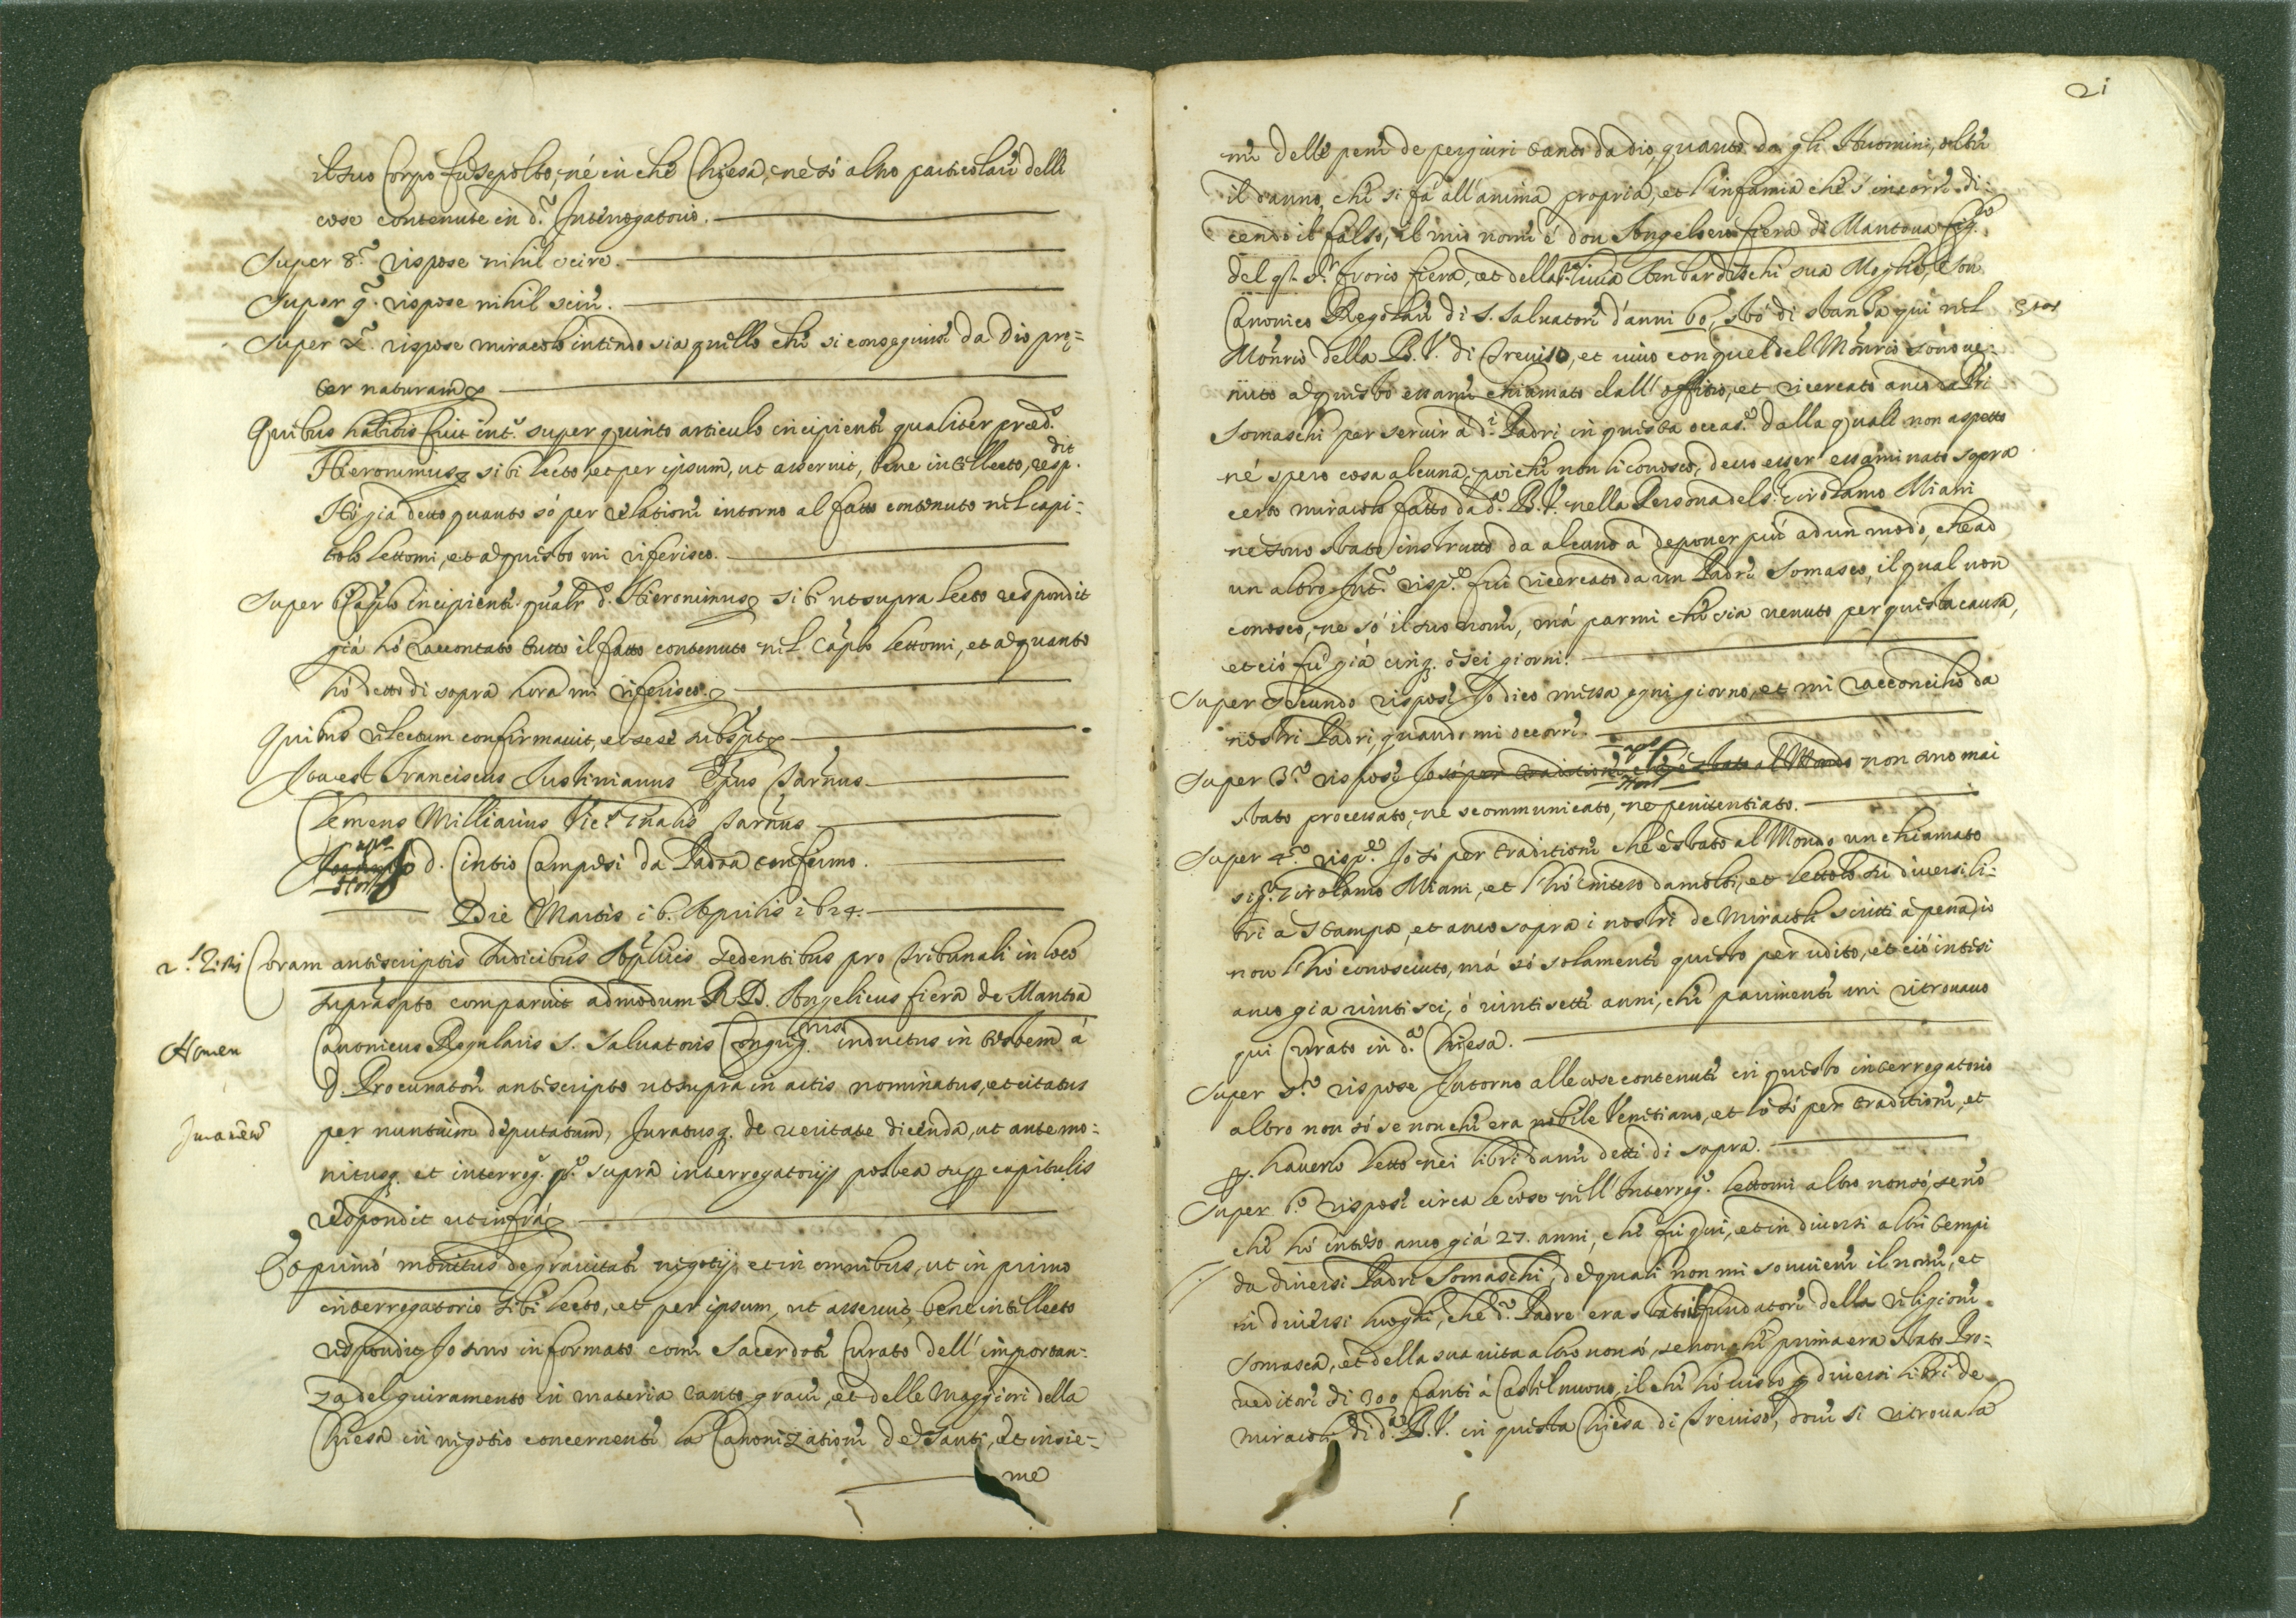 il suo Corpo fù sepolto, né in che Chiesa, ne só altro particolare delle
cose contenute in d.º Interrogatorio.
Super 8.º rispose nihil scire.
Super 9.º rispose nihil scire.
Super X.º rispose miracolo intendo sia quello che si conseguisce da Dio pre=
ter naturam
Quibus habitis fuit int.º super quinto articulo incipiente qualiter præd.º
Hieronimus sibi lecto, et per ipsum, ut asseruit, bene intellecto, resp.dit
Hò gia detto quanto só per relatione intorno al fatto contenuto nel capi=
tolo lettomi, et a questo mi riferisco.
Super 6 Caplo incipiente qualr d.º Hieronimus sibi ut supra lecto respondit
giá hó raccontato tutto il fatto contenuto nel Caplo lettomi, et a quanto
hó detto di sopra hora mi riferisco.
Quibus relectum confirmavit, et sese subspt
Ita est Franciscus Justinianus Epus Tarnus
Clemens Millianus Vic.s Gnalis Tarnus
d. Cintio Campesi da Padoa confermo.
Die Martis i6. Aprilis i624.
2.s Testis
Coram antescriptis Iudicibus Aplicis sedentibus pro Tribunali in loco
supraspto comparuit admodum R. D. Angelicus fiera de Mantoa
Nomen
Canonicus Regularis S. Salvatoris Congreg.nis inductus in testem á
d. Procuratore antescripto ut supra in actis nominatus, et citatus
Iuramentum
per nuntium deputatum, Juratusq. de veritate dicenda, ut ante mo=
nitusq. et interrog.º p.º supra interrogatorijs postea sup capitulis
respondit ut infrá
Et primó monitus de gravitate negotij, et in omnibus, ut in primo
interrogatorio sibi lecto, et per ipsum, ut asseruit, bene intellecto
respondit Io sono informato come Sacerdote Curato dell' importan=
za del giuramento in materia tanto grave, et delle Maggiori della
Chiesa in negotio concernente la Canonizatione de Santi, et insie=
me
21
me delle pene de pergiuri tanto da dio, quanto da gli Huomini, oltre
il danno, che si fá all' anima propria, et l' infamia che s' incorre di=
cendo il falso, il mio nome é don Angelico fiera di Mantova fig.lo
del q. S.r fiera, et della sua Moglie, son
Canonico Regolare di S. Salvatore d' anni 60, stó di stanza qui nel
Etas
Monrio della B. V. di Treviso, et vivo con quel del Monrio sono ve=
nuto a questo essame chiamato dall' offitio, et ricercato anco da Pri
Somaschi per servir á d.i Padri in questa occas.e dalla quale non aspetto
né spero cosa alcuna, poiche non li conosco, devo esser essaminato sopra
certo miracolo fatto da d.a B. V. nella Persona del s. Girolamo Miani
ne sono stato instrutto da alcuno á deponer piú ad un modo, che ad
un altro. Int.º risp.e fui ricercato da un Padre Somasco, il qual non
conosco, ne só il suo nome, má parmi che sia venuto per questa causa,
et ció fú giá cinq. o sei giorni.
Super secundo rispose Io dico messa ogni giorno, et mi racconcilio da
nostri Padri, quando mi occorre.
Super 3.º rispose Io só per traditione che é stato al Mondo non sono mai
stato processato, ne scommunicato, ne penitentiato.
Super 4.º risp.e Io só per traditione che é stato al Mondo un chiamato
sig.r Girolamo Miani, et l' hó inteso da molti, et lettolo sù diversi li=
bri a stampa, et anco sopra i nostri de Miracoli scritti á penna, io
non l' hó conosciuto, má só solamente questo per udito, et ció intesi
anco gia vintisei, ó vintisette anni, che parimente mi ritrovavo
qui Curato in d.a Chiesa.
Super 5.º rispose Intorno alle cose contenute in questo interrogatorio
altro non só se non che era nobile Venetiano, et lo só per traditione, et
p. haverlo letto nei libri da me detti di sopra.
Super 6.º rispose circa le cose nell' Interrog.º lettomi altro non só, se nõ
che hó inteso anco giá 27. anni, che fú qui, et in diversi altri tempi
da diversi Padri Somaschi, de quali non mi sovviene il nome, et
in diversi luoghi, che d.º Padre era stato fundatore della religione
Somasca, et della sua vita altro non só, se non che prima era stato Pro=
veditore di 300 fanti á Castel nuovo, il che hó visto p diversi libri de
miracoli di d.a B. V. in questa Chiesa di Treviso, dove si ritrova la